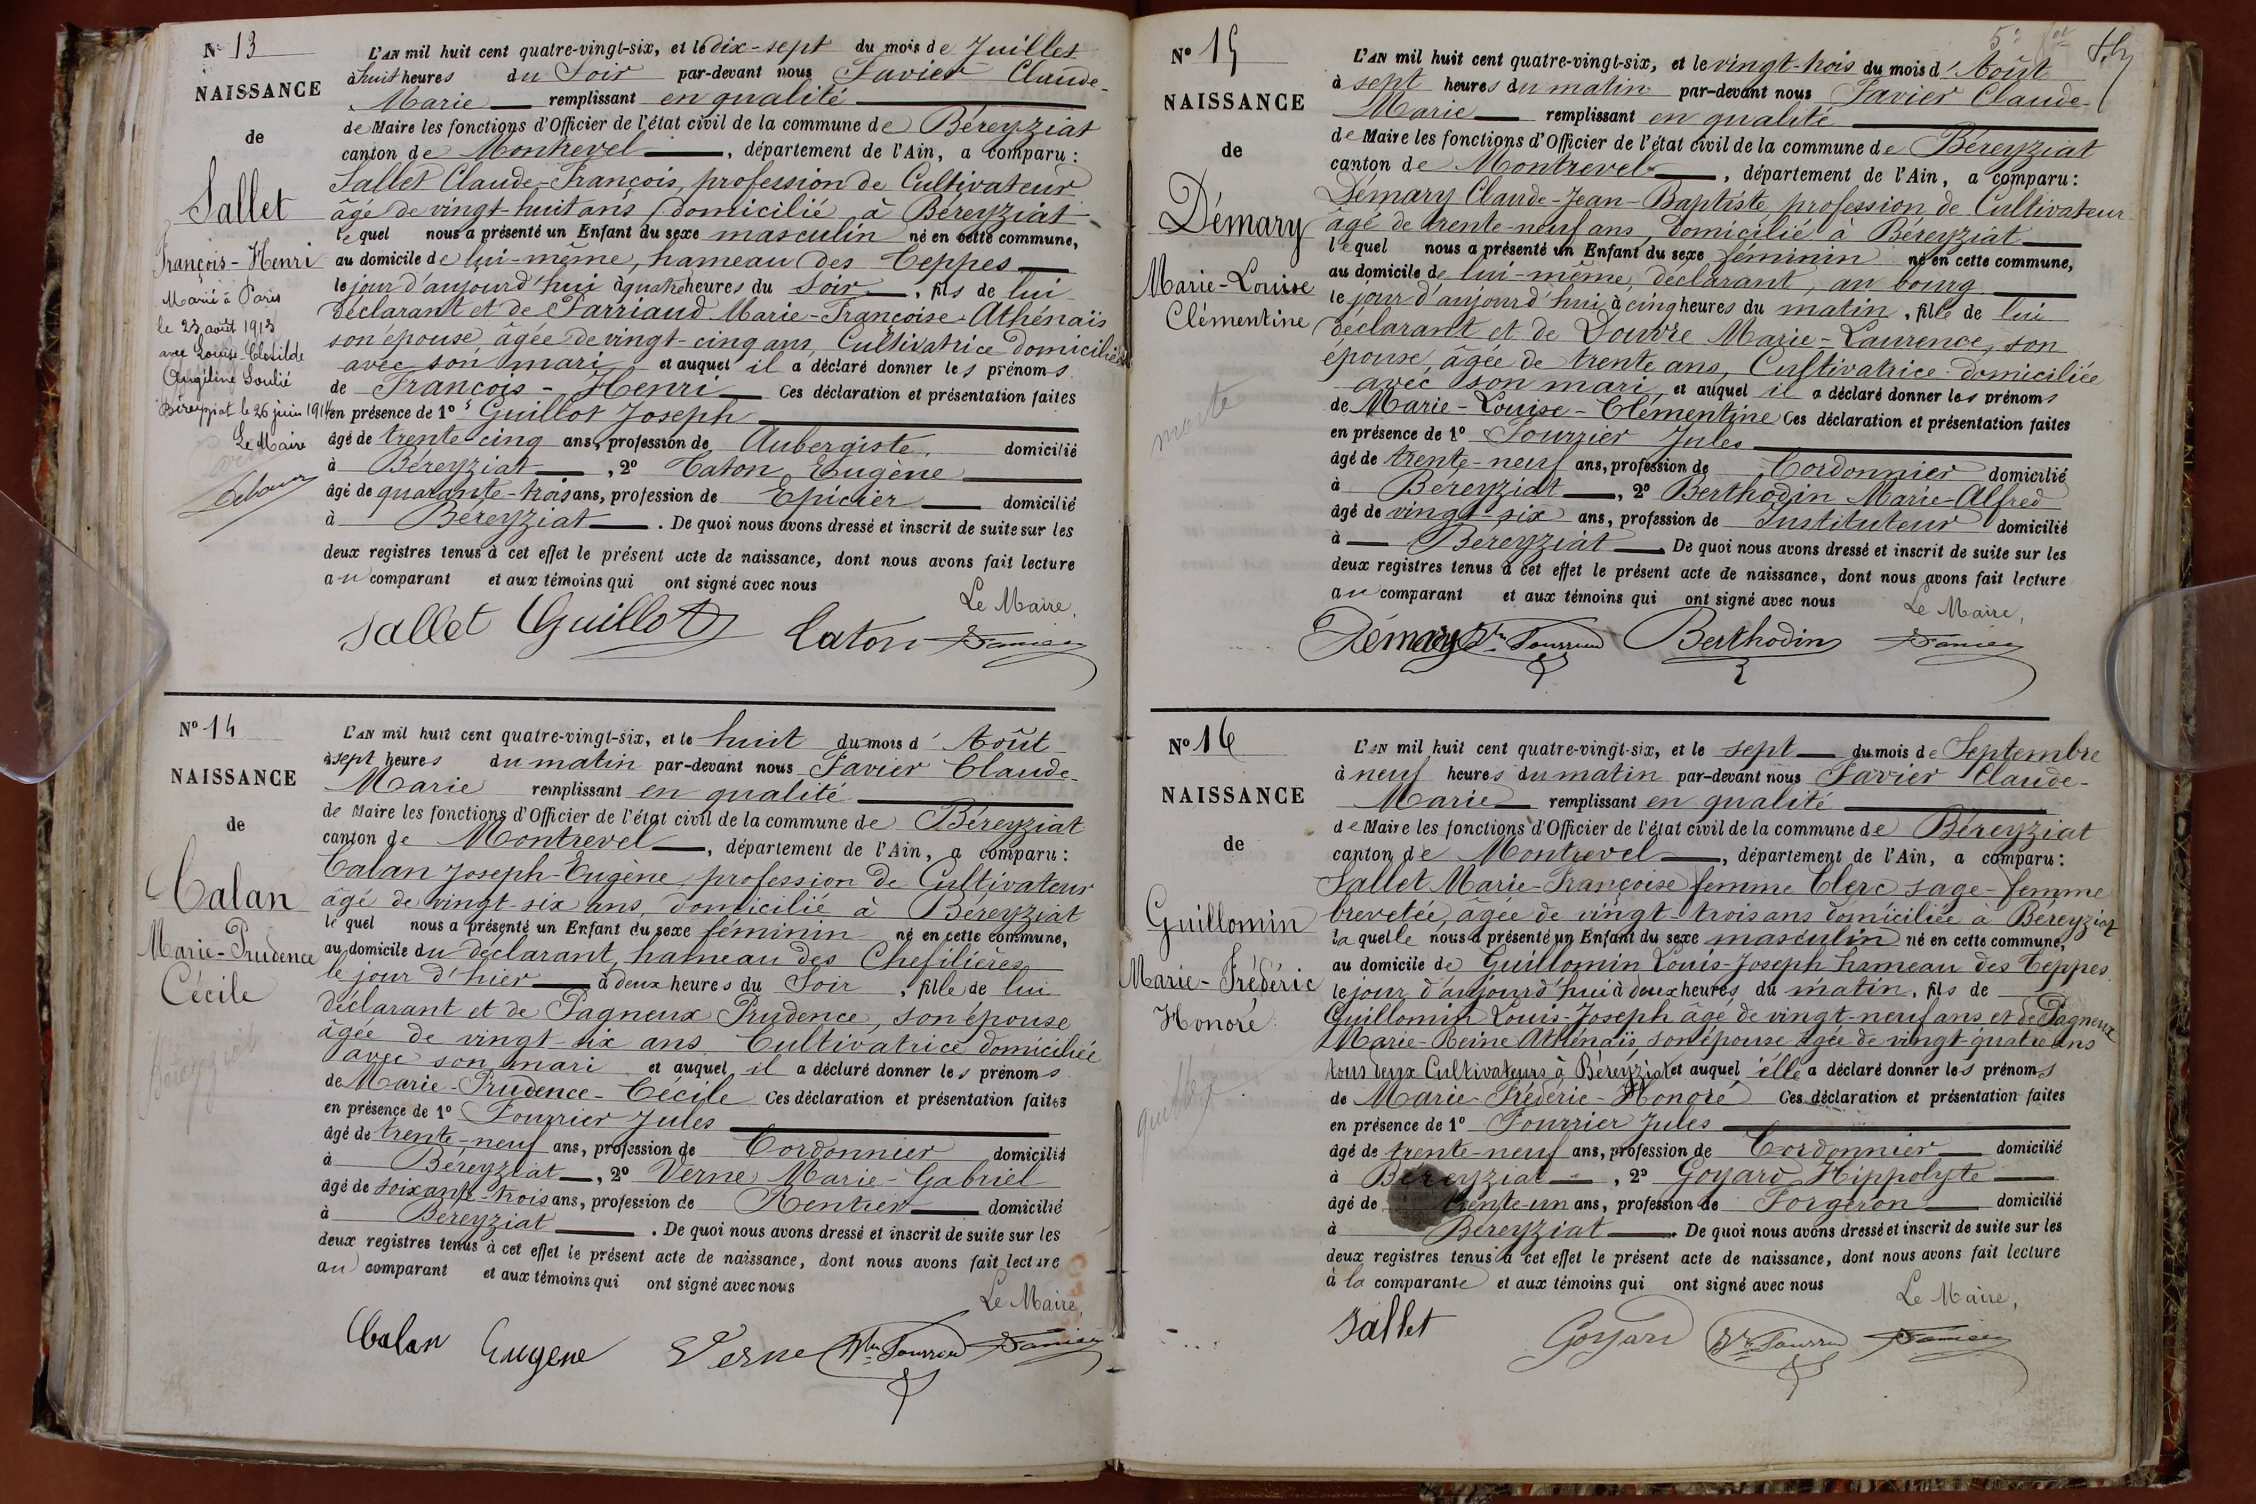 Nº 13
NAISSANCE
de
Sallet
François-Henri
Marié à Paris
le 23 août 1913
avec Louise-Clotilde
Angéline Soulié
Béreyziat le 26 juin 1914
Le Maire
L'AN mil huit cent quatre-vingt-six, et le dix-sept du mois de Juillet
à huit heures du Soir par-devant nous Favier Claude-
Marie remplissant en qualité
de Maire les fonctions d'Officier de l'état civil de la commune de Béreyziat
canton de Montrevel, département de l'Ain, a comparu:
Sallet Claude-François, profession de Cultivateur
âgé de vingt-huit ans, domicilié à Béreyziat
lequel nous a présenté un Enfant du sexe masculin né en cette commune,
au domicile de lui-même, hameau des Teppes
le jour d'aujourd'hui à quatre heures du Soir, fils de lui
déclarant et de Parriaud Marie-Françoise-Athénaïs
son épouse, âgée de vingt-cinq ans, Cultivatrice domiciliée
avec son mari et auquel il a déclaré donner les prénoms
de François-Henri Ces déclaration et présentation faites
en présence de 1º Guillot Joseph
âgé de trente-cinq ans, profession de Aubergiste, domicilié
à Béreyziat, 2º Caton Eugène
âgé de quarante-trois ans, profession de Epicier domicilié
à Béreyziat. De quoi nous avons dressé et inscrit de suite sur les
deux registres tenus à cet effet le présent acte de naissance, dont nous avons fait lecture
au comparant et aux témoins qui ont signé avec nous
Le Maire,
Sallet Guillot Caton
Nº 14
NAISSANCE
de
Calan
Marie-Prudence
Cécile
L'AN mil huit cent quatre-vingt-six, et le huit du mois d'Août
à sept heures du matin par-devant nous Favier Claude-
Marie remplissant en qualité
de Maire les fonctions d'Officier de l'état civil de la commune de Béreyziat
canton de Montrevel, département de l'Ain, a comparu:
Calan Joseph-Eugène, profession de Cultivateur
âgé de vingt-six ans, domicilié à Béreyziat
lequel nous a présenté un Enfant du sexe féminin né en cette commune,
au domicile du déclarant, hameau des Chefilières
le jour d'hier à deux heures du Soir, fille de lui
déclarant et de Pagneux Prudence, son épouse
âgée de vingt-six ans Cultivatrice domiciliée
avec son mari et auquel il a déclaré donner les prénoms
de Marie-Prudence-Cécile Ces déclaration et présentation faites
en présence de 1º Fourrier Jules
âgé de trente-neuf ans, profession de Cordonnier domicilié
à Béreyziat, 2º Verne Marie-Gabriel
âgé de soixante-trois ans, profession de Rentier domicilié
à Béreyziat. De quoi nous avons dressé et inscrit de suite sur les
deux registres tenus à cet effet le présent acte de naissance, dont nous avons fait lecture
au comparant et aux témoins qui ont signé avec nous
Le Maire,
Calan Eugene Verne
Nº 15
NAISSANCE
de
Démary
Marie-Louise
Clémentine
morte
L'AN mil huit cent quatre-vingt-six, et le vingt-trois du mois d'Août
à sept heures du matin par-devant nous Favier Claude-
Marie remplissant en qualité
de Maire les fonctions d'Officier de l'état civil de la commune de Béreyziat
canton de Montrevel, département de l'Ain, a comparu:
Démary Claude-Jean-Baptiste, profession de Cultivateur
âgé de trente-neuf ans, domicilié à Béreyziat
lequel nous a présenté un Enfant du sexe féminin né en cette commune,
au domicile de lui-même, déclarant, au bourg
le jour d'aujourd'hui à cinq heures du matin, fille de lui
déclarant et de Douvre Marie-Laurence, son
épouse, âgée de trente ans, Cultivatrice domiciliée
avec son mari, et auquel il a déclaré donner les prénoms
de Marie-Louise-Clémentine Ces déclaration et présentation faites
en présence de 1º Fourrier Jules
âgé de trente-neuf ans, profession de Cordonnier domicilié
à Béreyziat, 2º Berthodin Marie-Alfred
âgé de vingt-six ans, profession de Instituteur domicilié
à Béreyziat De quoi nous avons dressé et inscrit de suite sur les
deux registres tenus à cet effet le présent acte de naissance, dont nous avons fait lecture
au comparant et aux témoins qui ont signé avec nous
Le Maire,
Démary Berthodin
Nº 16
NAISSANCE
de
Guillomin
Marie-Frédéric
Honoré
L'AN mil huit cent quatre-vingt-six, et le sept du mois de Septembre
à neuf heures du matin par-devant nous Favier Claude-
Marie remplissant en qualité
de Maire les fonctions d'Officier de l'état civil de la commune de Béreyziat
canton de Montrevel, département de l'Ain, a comparu:
Sallet Marie-Françoise femme Clerc sage-femme
brevetée, âgée de vingt-trois ans domiciliée à Béreyziat
laquelle nous a présenté un Enfant du sexe masculin né en cette commune,
au domicile de Guillomin Louis-Joseph hameau des Teppes
le jour d'aujourd'hui à deux heures du matin, fils de
Guillomin Louis-Joseph âgé de vingt-neuf ans et de Pagneux
Marie-Reine Athénaïs, son épouse âgée de vingt-quatre ans
tous deux Cultivateurs à Béréyziat et auquel elle a déclaré donner les prénoms
de Marie-Frédéric-Honoré Ces déclaration et présentation faites
en présence de 1º Fourrier Jules
âgé de trente-neuf ans, profession de Cordonnier domicilié
à Béreyziat, 2º Goyard Hippolyte
âgé de trente-un ans, profession de Forgeron domicilié
à Béreyziat. De quoi nous avons dressé et inscrit de suite sur les
deux registres tenus à cet effet le présent acte de naissance, dont nous avons fait lecture
à la comparante et aux témoins qui ont signé avec nous
Le Maire,
Sallet Goyard